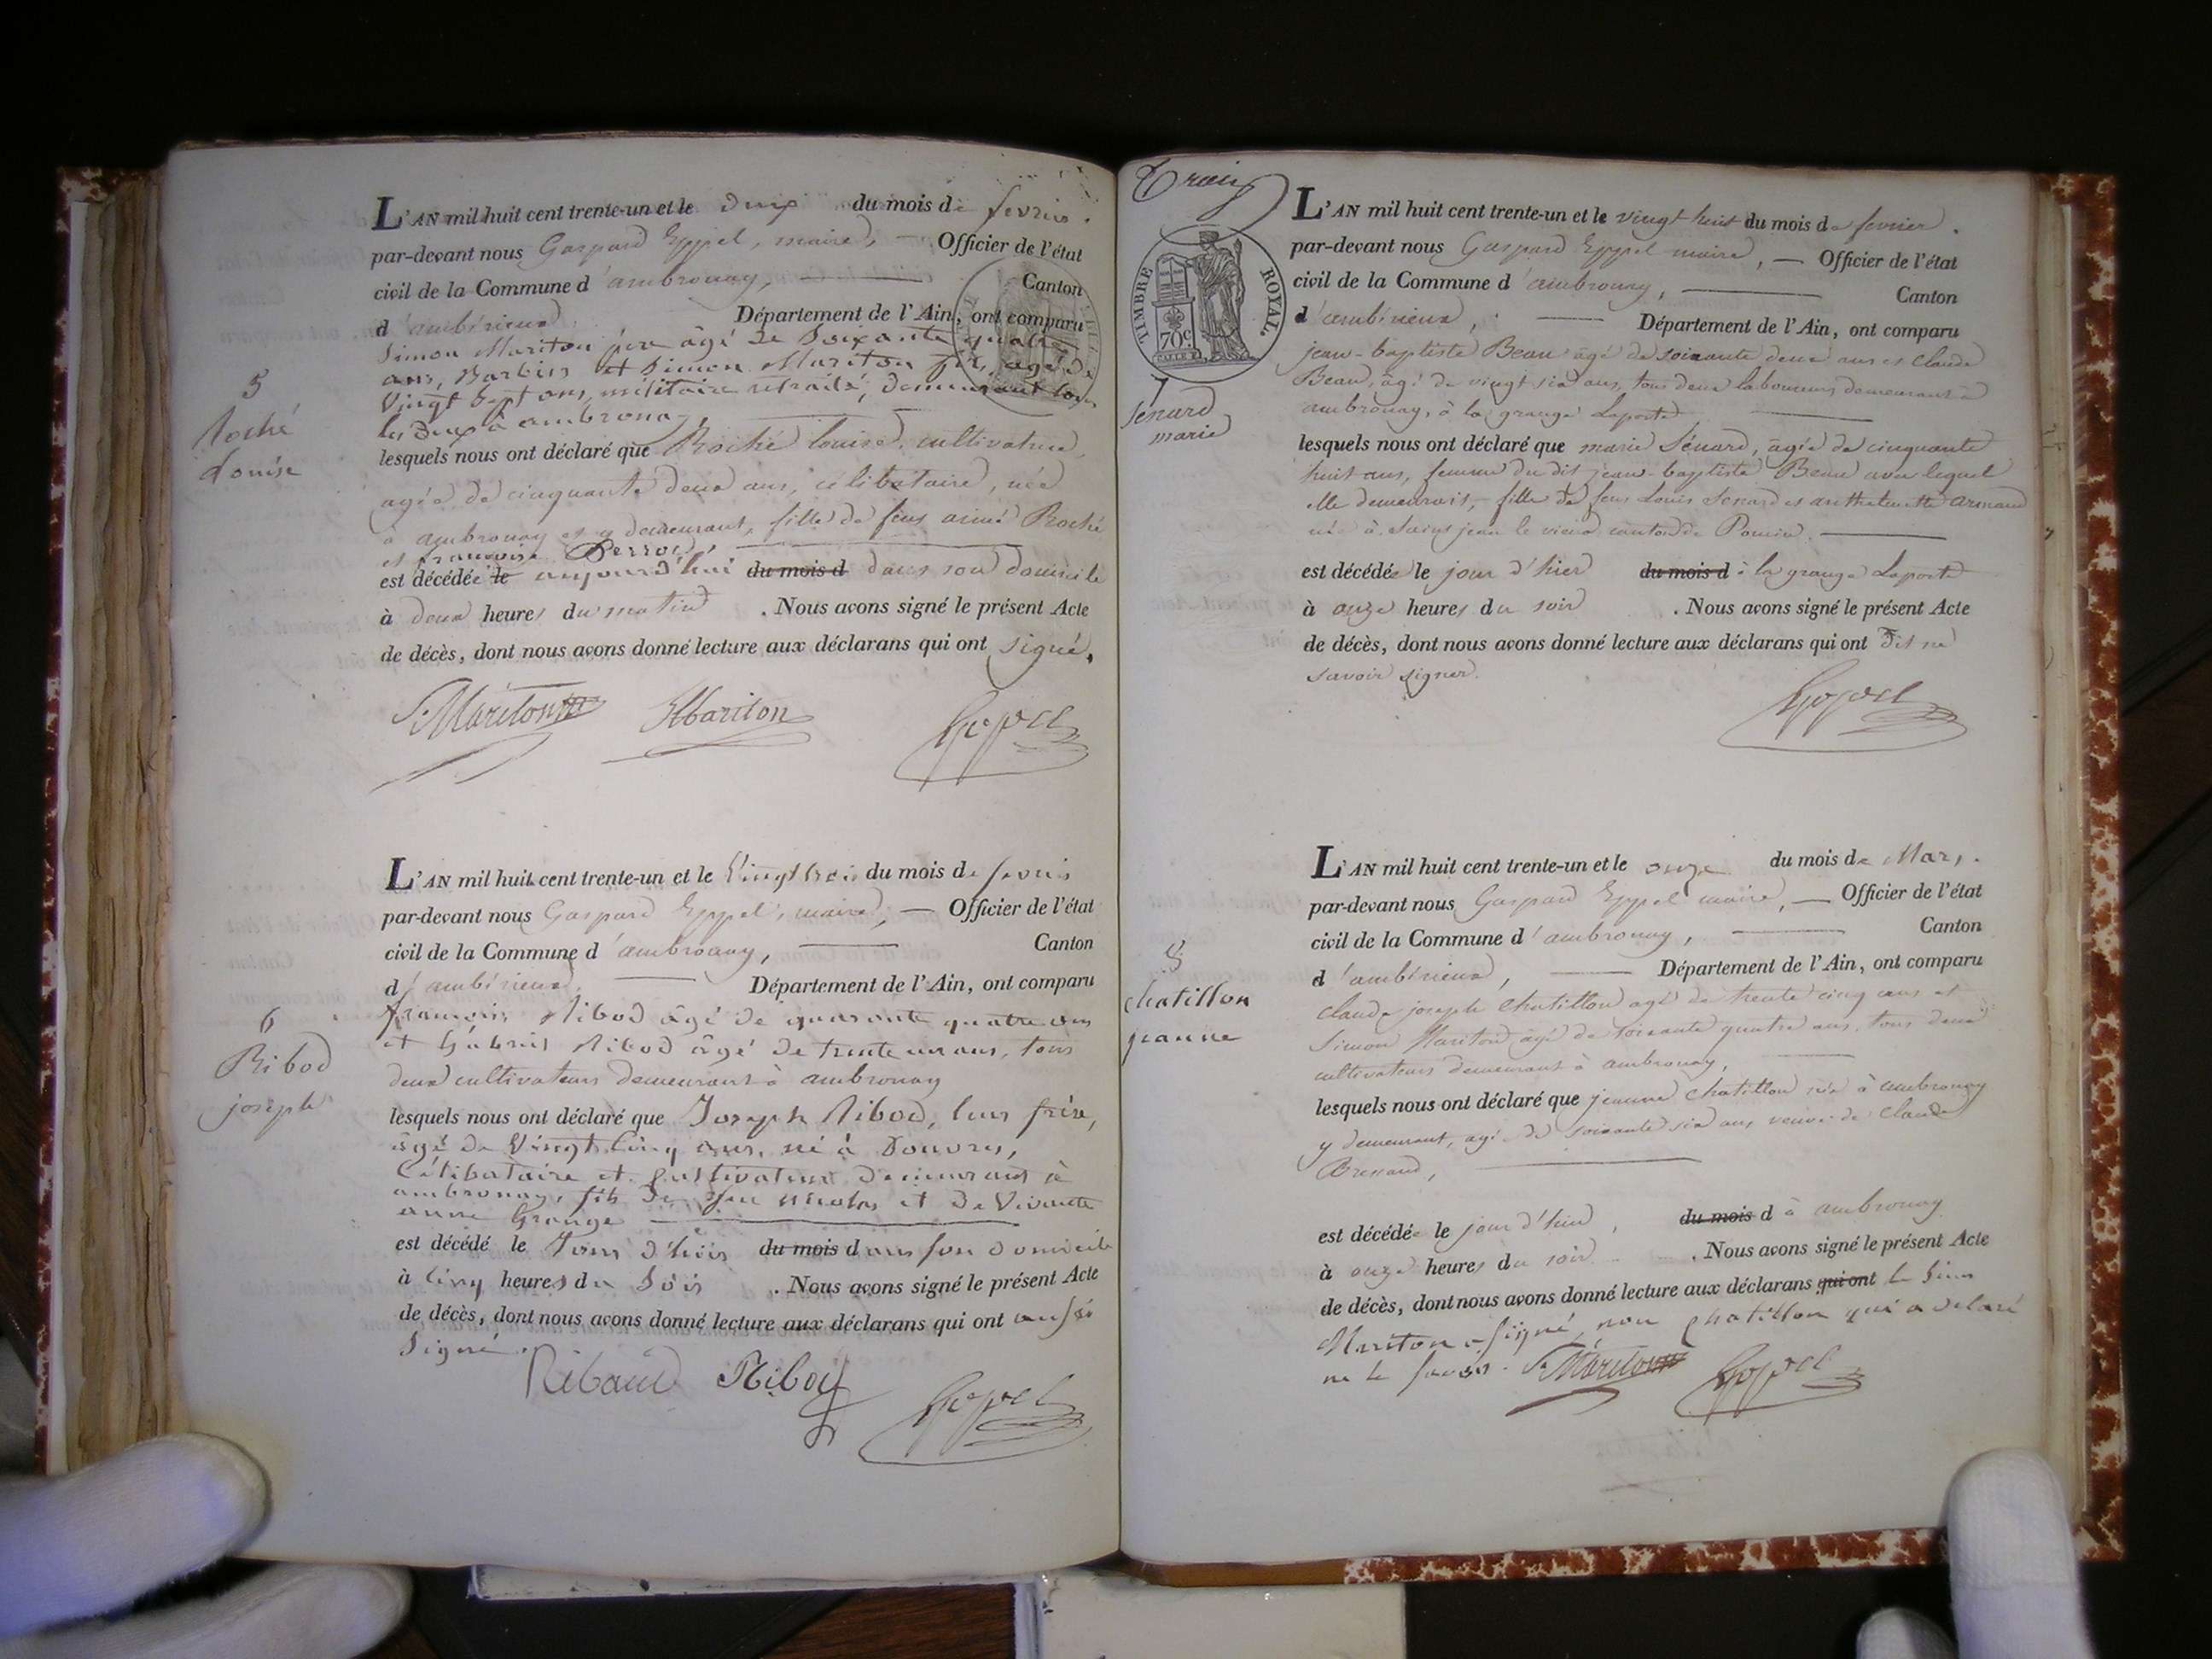 L'AN mil huit cent trente-un et le deux du mois de fevrier.
par-devant nous Gaspard Eyppel, maire, — Officier de l'état
civil de la Commune d'ambronay, — Canton
d'ambérieux Département de l'Ain, ont comparu
Simon Mariton père âgé de soixante quatre
ans, Barbier et Simon Mariton fils, agé de
vingt sept ans, militaire retraité, demeurant tous
les deux à ambronay
5
Roché
Louise
lesquels nous ont déclaré que Roché louise, cultivatrice,
agée de cinquante deux ans, célibataire, née
à ambronay et y demeurant, fille de feus aimé Roché
et françoise Perrod, —
est décédée le aujourd'hui du mois d dans son domicile
à deux heures du matin . Nous avons signé le présent Acte
de décès, dont nous avons donné lecture aux déclarans qui ont signé.
S. Mariton Mariton Eyppel
L'AN mil huit cent trente-un et le vingt trois du mois de fevrier
par-devant nous Gaspard Eyppel, maire, — Officier de l'état
civil de la Commune d'ambronay, — Canton
d'ambérieux — Département de l'Ain, ont comparu
françois Ribod âgé de quarante quatre ans
et Gabriel Ribod âgé de trente un ans, tous
deux cultivateurs demeurant à ambronay
6
Ribod
joseph
lesquels nous ont déclaré que Joseph Ribod, leur frère,
âgé de vingt cinq ans, né à Douvres,
Célibataire et Cultivateur demeurant à
ambronay, fils de feu nicolas et de vivante
anne Grange —
est décédé le jour d'hier du mois dans son domicile
à cinq heures du soir . Nous avons signé le présent Acte
de décès, dont nous avons donné lecture aux déclarans qui ont aussi
signé.
Ribaud Ribod Eyppel
Trois
TIMBRE ROYAL.
70c
7
Sénard
marie
L'AN mil huit cent trente-un et le vingt huit du mois de fevrier.
par-devant nous Gaspard Eyppel maire, — Officier de l'état
civil de la Commune d'ambronay, — Canton
d'ambérieux, — Département de l'Ain, ont comparu
jean-baptiste Beau âgé de soixante deux ans et Claude
Beau, âgé de vingt six ans, tous deux laboureurs demeurant à
ambronay, à la grange Laporte —
lesquels nous ont déclaré que marie Sénard, âgée de cinquante
huit ans, femme du dit jean-baptiste Beau avec lequel
elle demeurait, fille de feus Louis Senard et anthelmette armand
née à Saint jean le vieux canton de Poncin. —
est décédée le jour d'hier du mois d à la grange Laporte
à onze heures du soir . Nous avons signé le présent Acte
de décès, dont nous avons donné lecture aux déclarans qui ont dit ne
savoir signer.
Eyppel
L'AN mil huit cent trente-un et le onze du mois de Mars.
par-devant nous Gaspard Eyppel maire, — Officier de l'état
civil de la Commune d'ambronay, — Canton
d'ambérieux, — Département de l'Ain, ont comparu
8
chatillon
jeanne
Claude joseph Chatillon agé de trente cinq ans et
Simon Mariton âgé de soixante quatre ans, tous deux
cultivateurs demeurant à ambronay, —
lesquels nous ont déclaré que jeanne Chatillon née à ambronay
y demeurant, agée de soixante six ans, veuve de Claude
Brenaud, —
est décédée le jour d'hier, du mois d à ambronay
à onze heures du soir . Nous avons signé le présent Acte
de décès, dont nous avons donné lecture aux déclarans qui ont le Sieur
Mariton a signé, non Chatillon qui a déclaré
ne le savoir. S. Mariton Eyppel